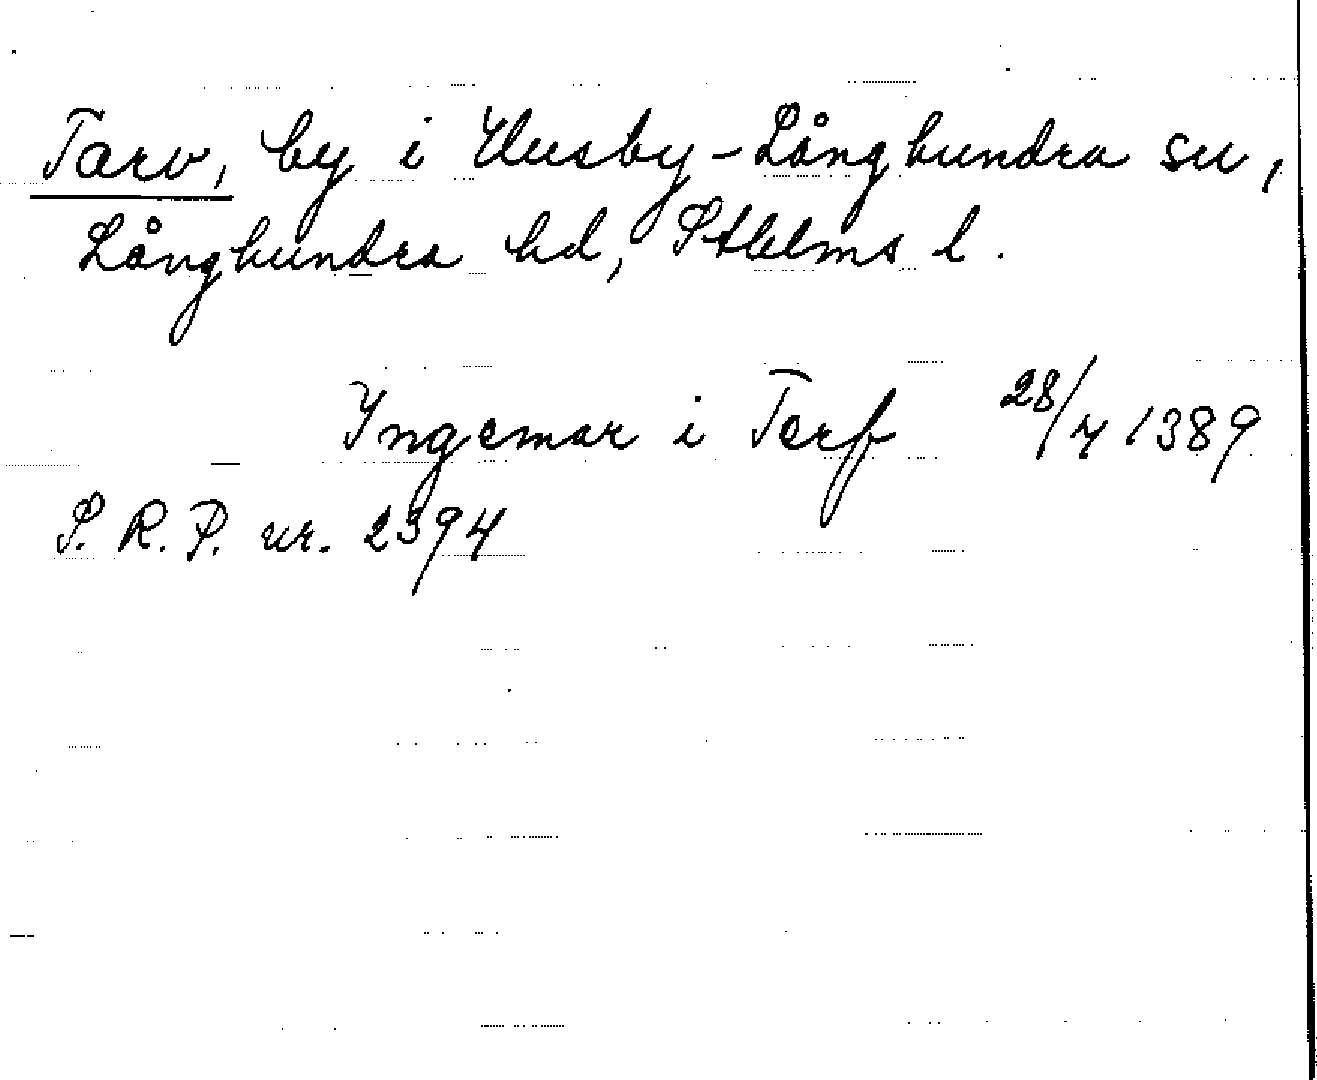 Tarv, by i Husby-Långhundra sn,
Långhundra hd, Sthlms l.
Ingemar i Terf 28/4 1389
S. R. P. nr. 2394